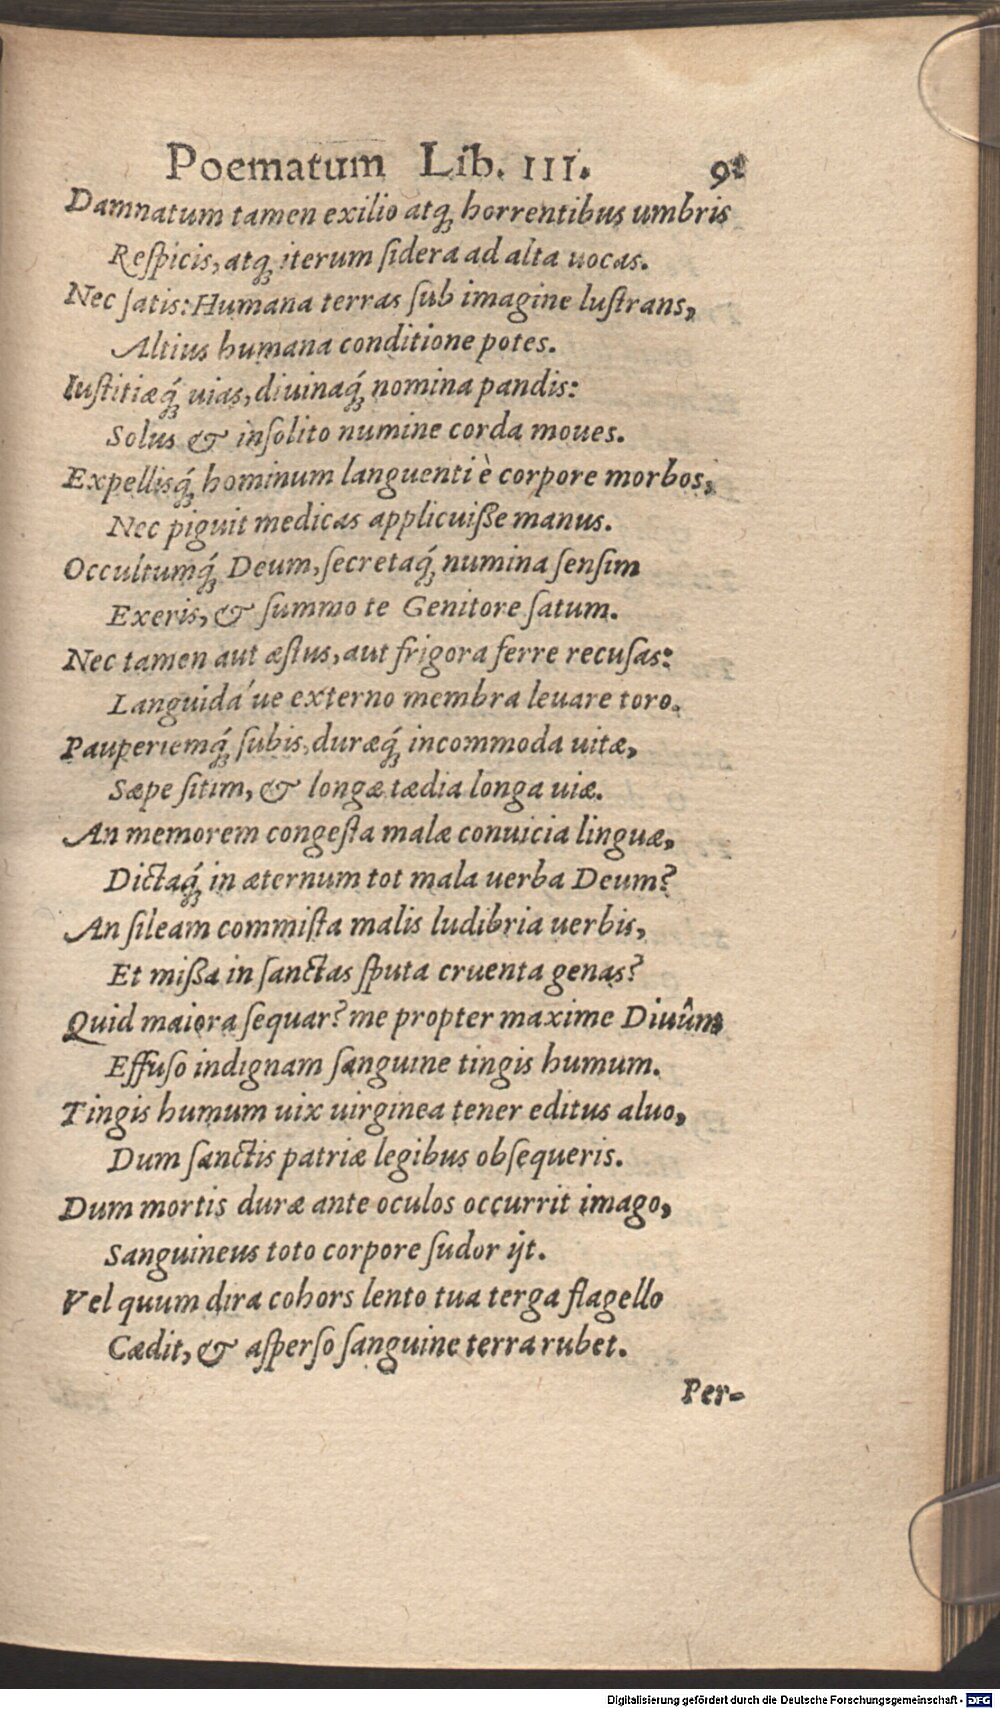 Poematum Lib. III. 91
Damnatum tamen exilio atq; horrentibus umbris
Reſpicis, atq; iterum ſidera ad alta uocas.
Nec ſatis: Humana terras ſub imagine luſtrans,
Altius humana conditione potes.
Iuſtitiæq́; uias, diuinaq́; nomina pandis:
Solus & inſolito numine corda moues.
Expellisq́; hominum languenti è corpore morbos,
Nec piguit medicas applicuiſſe manus.
Occultumq́; Deum, ſecretaq́; numina ſenſim
Exeris, & ſummo te Genitore ſatum.
Nec tamen aut æſtus, aut frigora ferre recuſas:
Languidá ue externo membra leuare toro.
Pauperiemq́; ſubis, duræq́; incommoda uitæ,
Sæpe ſitim, & longæ tædia longa uiæ.
An memorem congeſta malæ conuicia linguæ,
Dictaq́; in æternum tot mala uerba Deum?
An ſileam commiſta malis ludibria uerbis,
Et miſſa in ſanctas ſputa cruenta genas?
Quid maiora ſequar? me propter maxime Diuûm
Effuſo indignam ſanguine tingis humum.
Tingis humum uix uirginea tener editus aluo,
Dum ſanctis patriæ legibus obſequeris.
Dum mortis duræ ante oculos occurrit imago,
Sanguineus toto corpore ſudor ijt.
Vel quum dira cohors lento tua terga flagello
Cædit, & aſperſo ſanguine terra rubet.
Per-
Digitalisierung gefördert durch die Deutsche Forschungsgemeinschaft - DFG